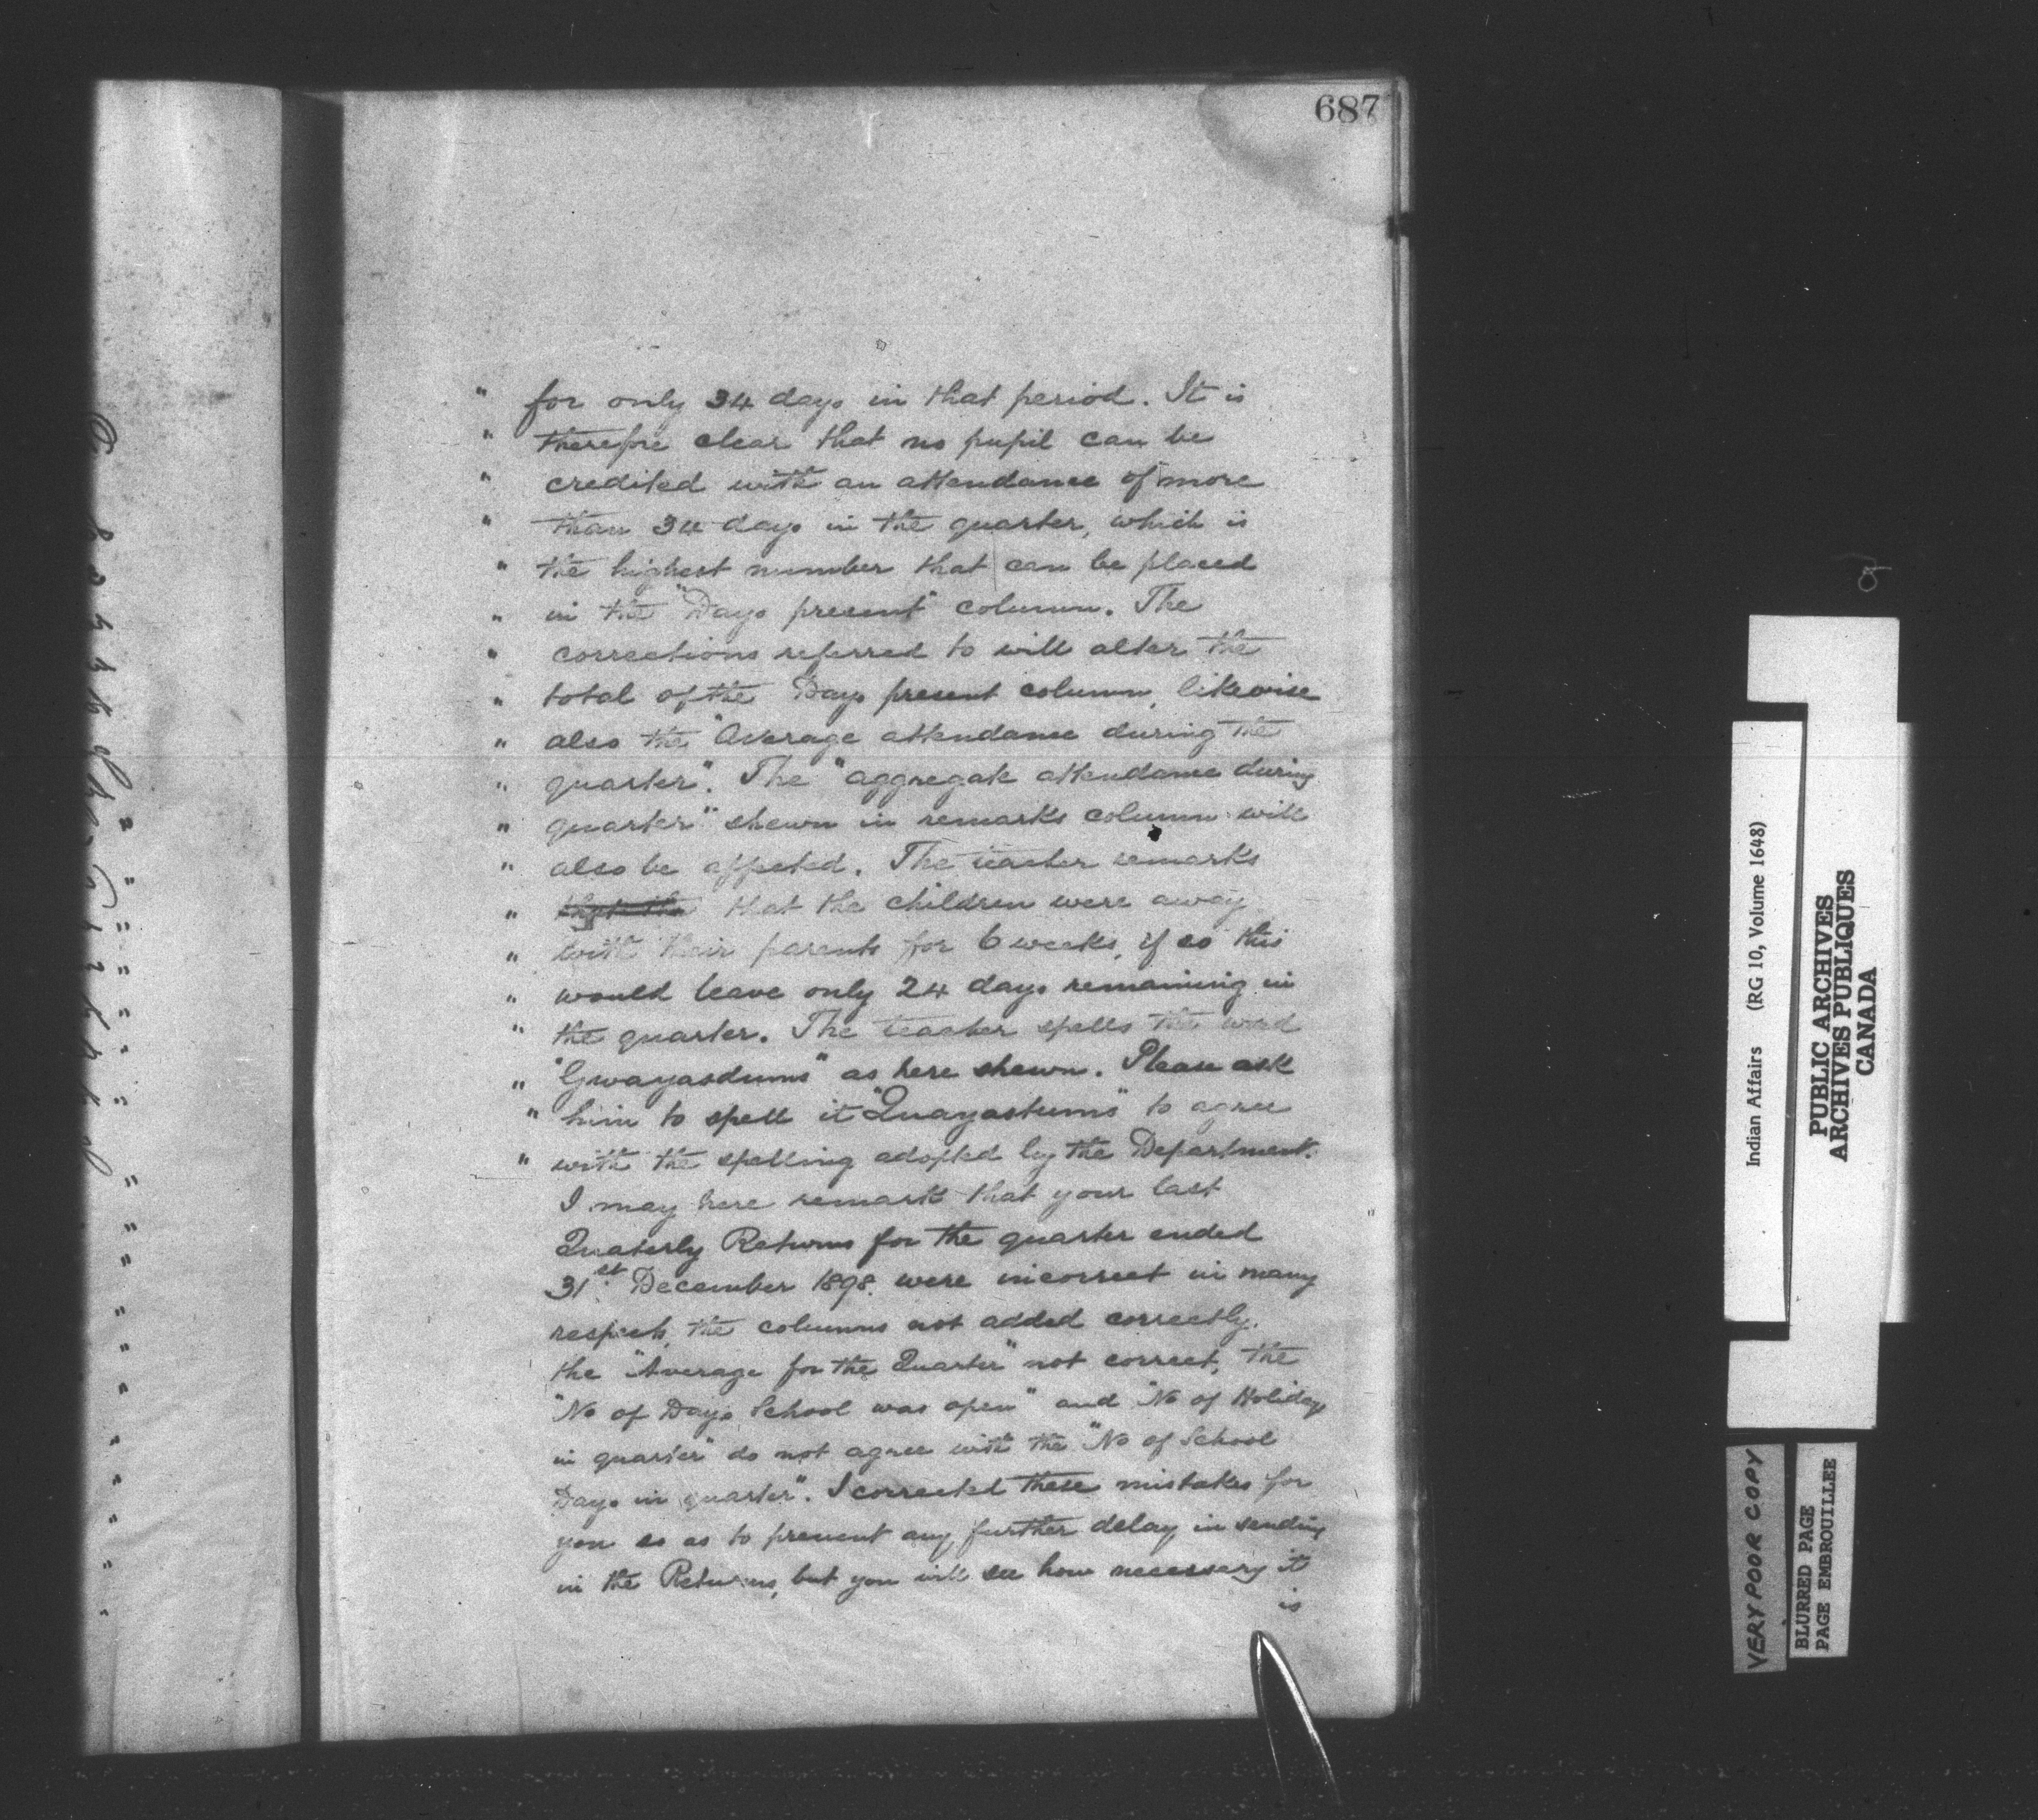 687
" for only 34 days in that period. It is
" therefore clear that no pupil can be
" credited with an attendance of more
" than 34 days in the quarter, which is
" the highest number that can be placed
" in the "Days present" column. The
" corrections referred to will alter the
" total of the "Days present column, likewise
" also the "Average attendance during the
" quarter". The "aggregate attendance during
" quarter" shewn in remarks column will
" also be affected. The teacher remarks
" that the that the children were away
" with their parents for 6 weeks, if so this
" would leave only 24 days remaining in
" the quarter. The teacher spells the word
" "Gwayasdums" as here shewn. Please ask
" him to spell it "Quayastums" to agree
" with the spelling adopted by the Department.
I may here remark that your last
Quaterly Returns for the quarter ended
31st December 1898. were incorrect in many
respects, the columns not added correctly.
the "Average for the Quarter" not correct, the
"No of Days School was open" and "No of Holidays
in quarter" do not agree with the "No of School
Days in quarter". I corrected these mistakes for
you so as to prevent any further delay in sending
in the Returns, but you will see how necessary it
is
Indian Affairs (RG 10, Volume 1648)
PUBLIC ARCHIVES
ARCHIVES PUBLIQUES
CANADA
VERY POOR COPY
BLURRED PAGE
PAGE EMBROUILLEE